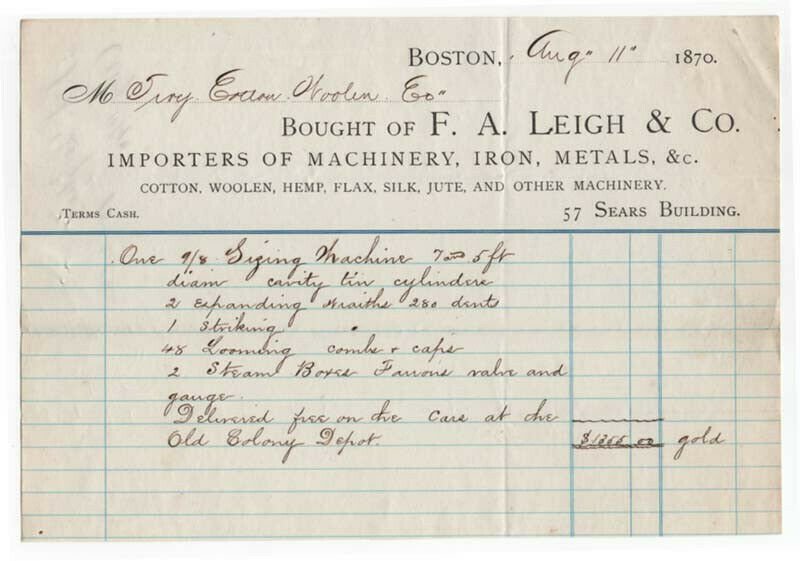 BOSTON, Aug" 11" 1870.
M Troy Cotton Woolen Co"
BOUGHT OF F. A. LEIGH & CO.
IMPORTERS OF MACHINERY, IRON, METALS, &c.
COTTON, WOOLEN, HEMP, FLAX, SILK, JUTE, AND OTHER MACHINERY.
TERMS CASH. 57 SEARS BUILDING.
One 9/8 Sizing Machine 7 and 5 ft
diam cavity tin cylinders
2 expanding wraiths 280 dents
1 Striking
48 Looming combs & caps
2 Steam Boxes valve and
gauge.
Delivered free on the Cars at the
Old Colony Depot. gold